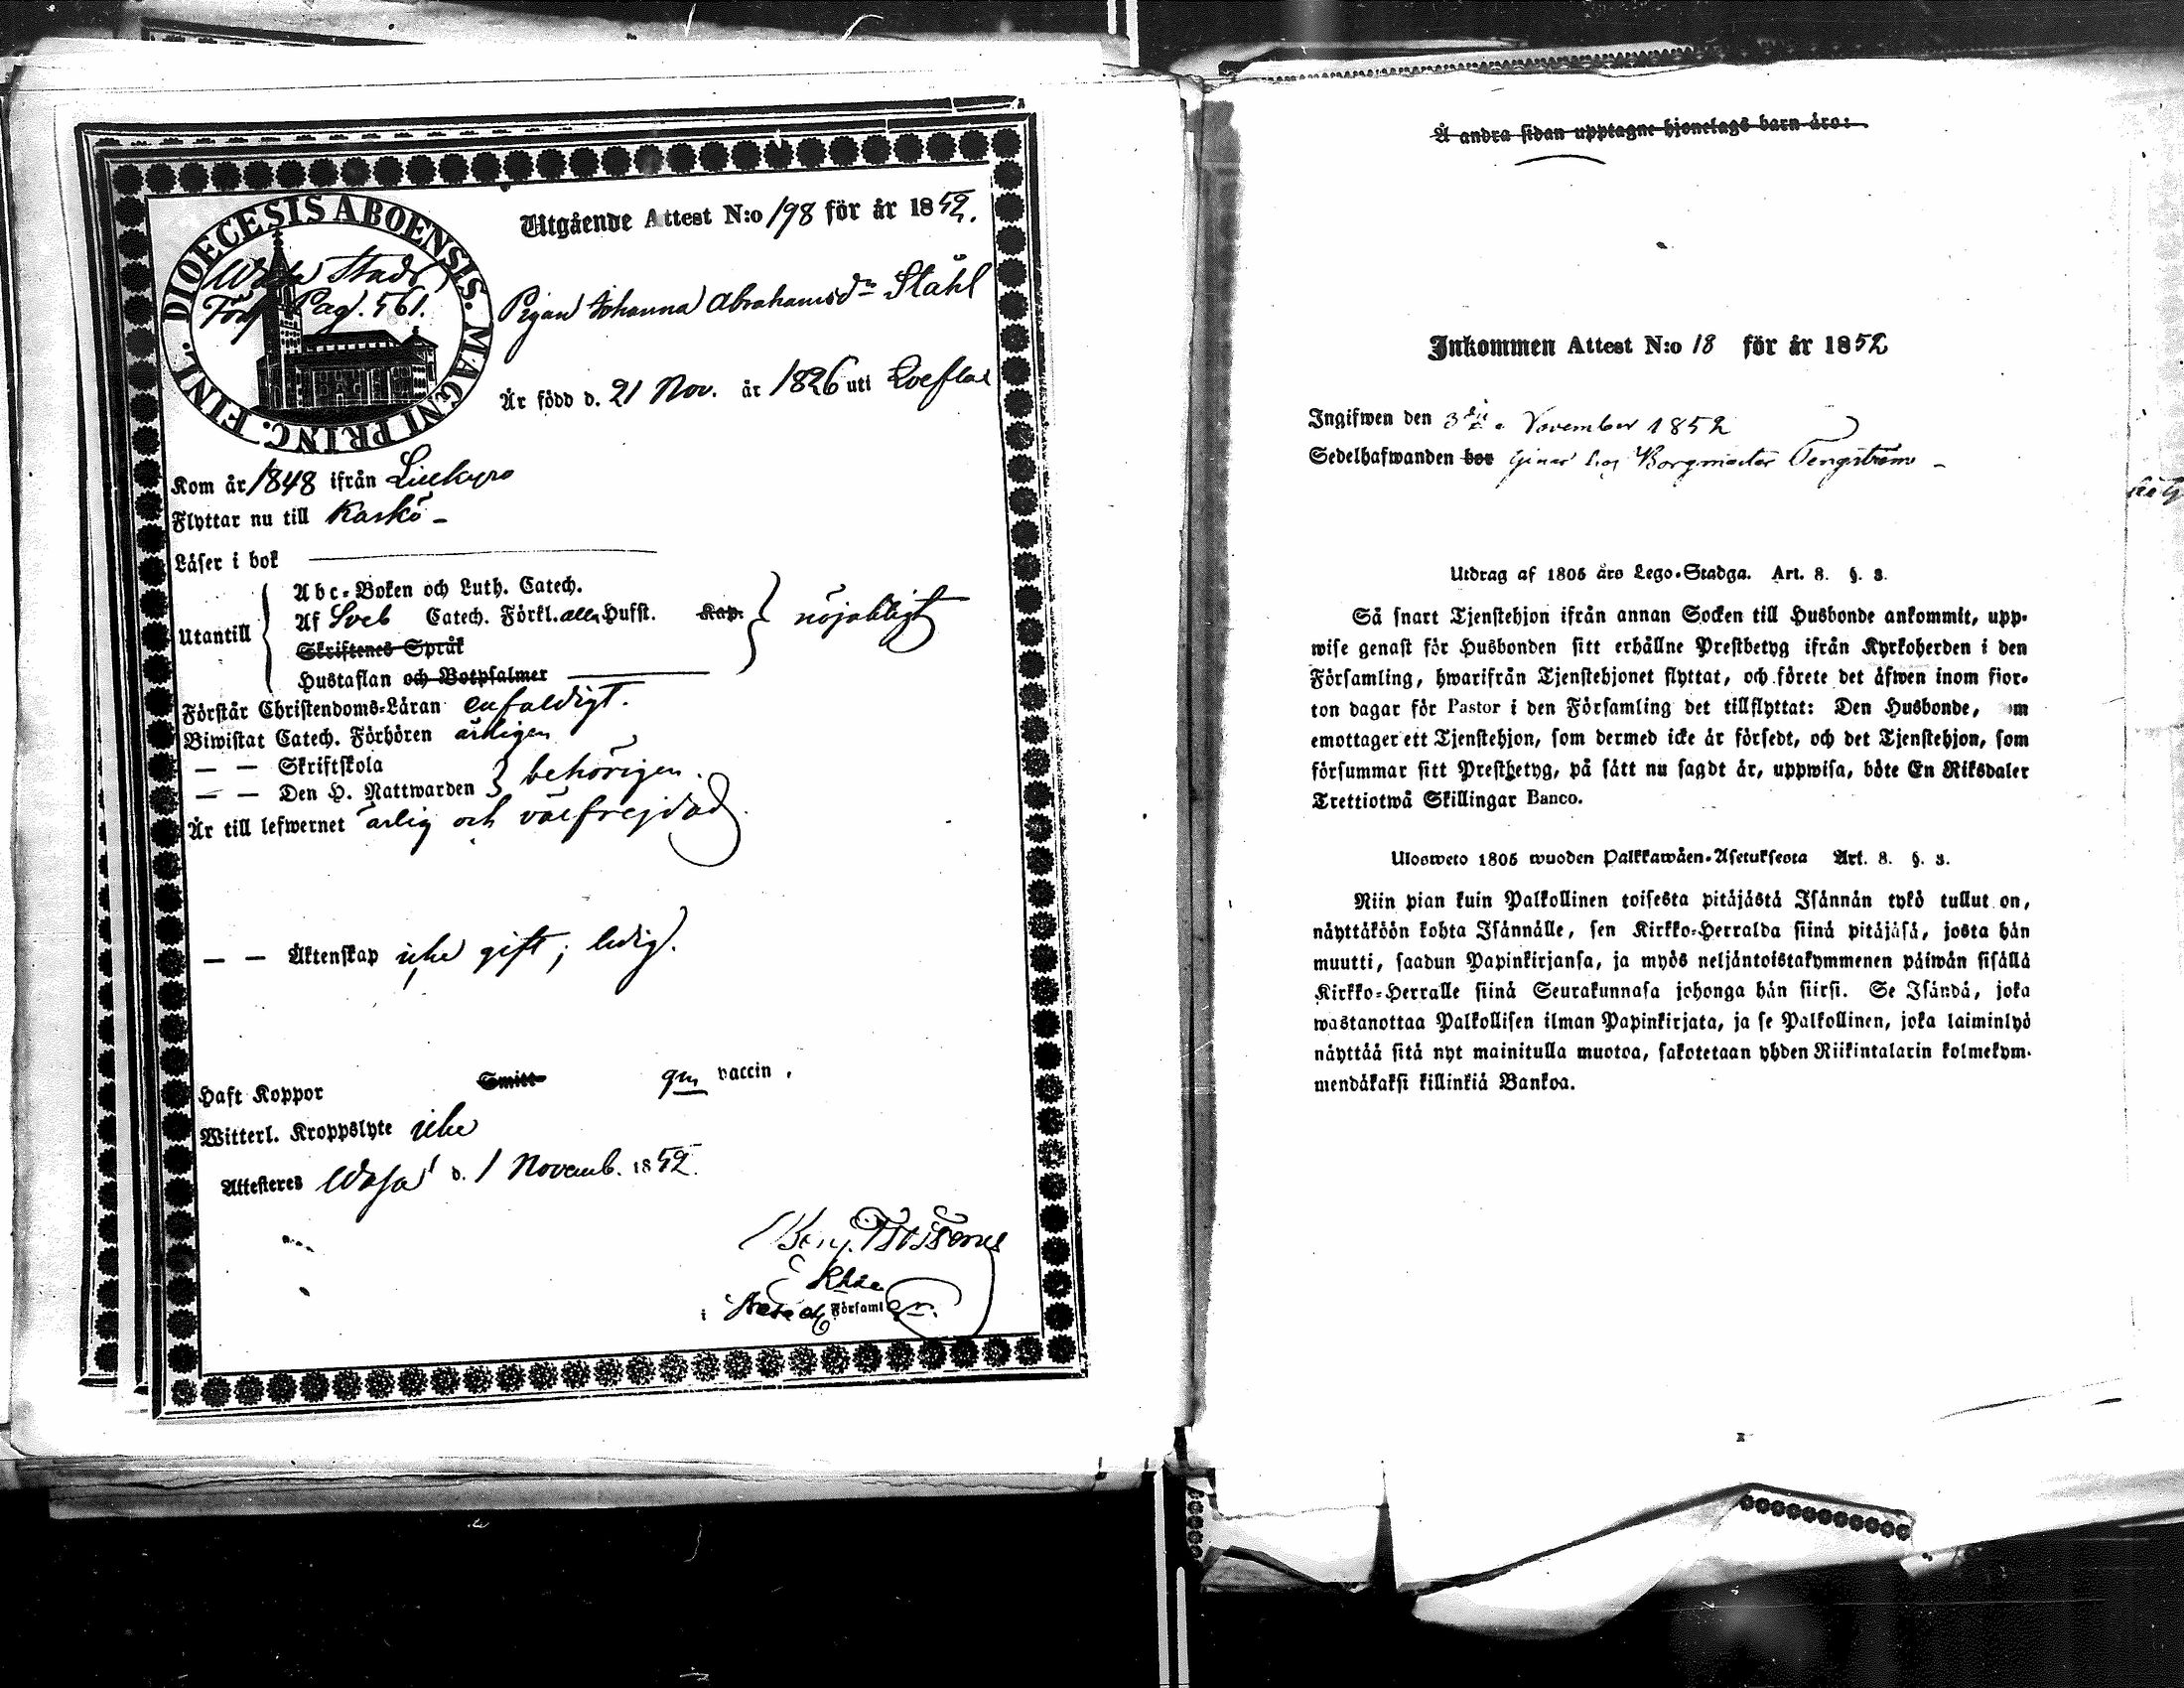 DIOECESIS ABOENSIS. MAGNI PRINC. FINL.
Wasa Stads
Förs. Pag. 561.
Utgående Attest N:o 198 för år 1852.
Pigan Johanna Abrahamsdr Ståhl
Är född d. 21 Nov. år 1826 uti
Kom år 1848 ifrån
Flyttar nu till Kaskö -
Läser i bok
Utantill
Abc-Boken och Luth. Catech.
Af Sveb Catech. Förkl. alla Hufst. Kap.
nöjaktigt
Skriftenes Språk
Hustaflan och Botpsalmer
Förstår Christendoms-Läran enfaldigt.
Biwistat Catech. Förhören årligen
— — Skriftskola
— — Den H. Nattwarden
behörigen.
Är till lefwernet ärlig och välfrejdad.
— — Äktenskap icke gift; ledig.
Haft Koppor Smitt gm vaccin.
Witterl. Kroppslyte icke
Attesteras Wasa d. 1 Novemb. 1852.
Benj.
i Församl
Å andra sidan upptagne hjonelags barn äro:
Inkommen Attest N:o 18 för år 1852
Ingifwen den 3 November 1852
Sedelhafwanden bor tjenar hos Borgmäster Tengström -
Utdrag af 1805 års Lego-Stadga. Art. 8. §. 3.
Så snart Tjenstehjon ifrån annan Socken till Husbonde ankommit, upp-
wise genast för Husbonden sitt erhållne Prestbetyg ifrån Kyrkoherden i den
Församling, hwarifrån Tjenstehjonet flyttat, och förete det äfwen inom fior-
ton dagar för Pastor i den Församling det tillflyttat: Den Husbonde, om
emottager ett Tjenstehjon, som dermed icke är försedt, och det Tjenstehjon, som
försummar sitt Prestbetyg, på sätt nu sagdt är, uppwisa, böte En Riksdaler
Trettiotwå Skillingar Banco.
Ulosweto 1805 wuoden Palkkawäen-Asetuksesta Art. 8. §. 3.
Niin pian kuin Palkollinen toisesta pitäjästä Isännän tykö tullut on,
näyttäköön kohta Isännälle, sen Kirkko-Herralda siinä pitäjäsä, josta hän
muutti, saadun Papinkirjansa, ja myös neljäntoistakymmenen päiwän sisällä
Kirkko-Herralle siinä Seurakunnasa johonga hän siirsi. Se Isändä, joka
wastanottaa Palkollisen ilman Papinkirjata, ja se Palkollinen, joka laiminlyö
näyttää sitä nyt mainitulla muotoa, sakotetaan yhden Riikintalarin kolmekym-
mendäkaksi killinkiä Bankoa.